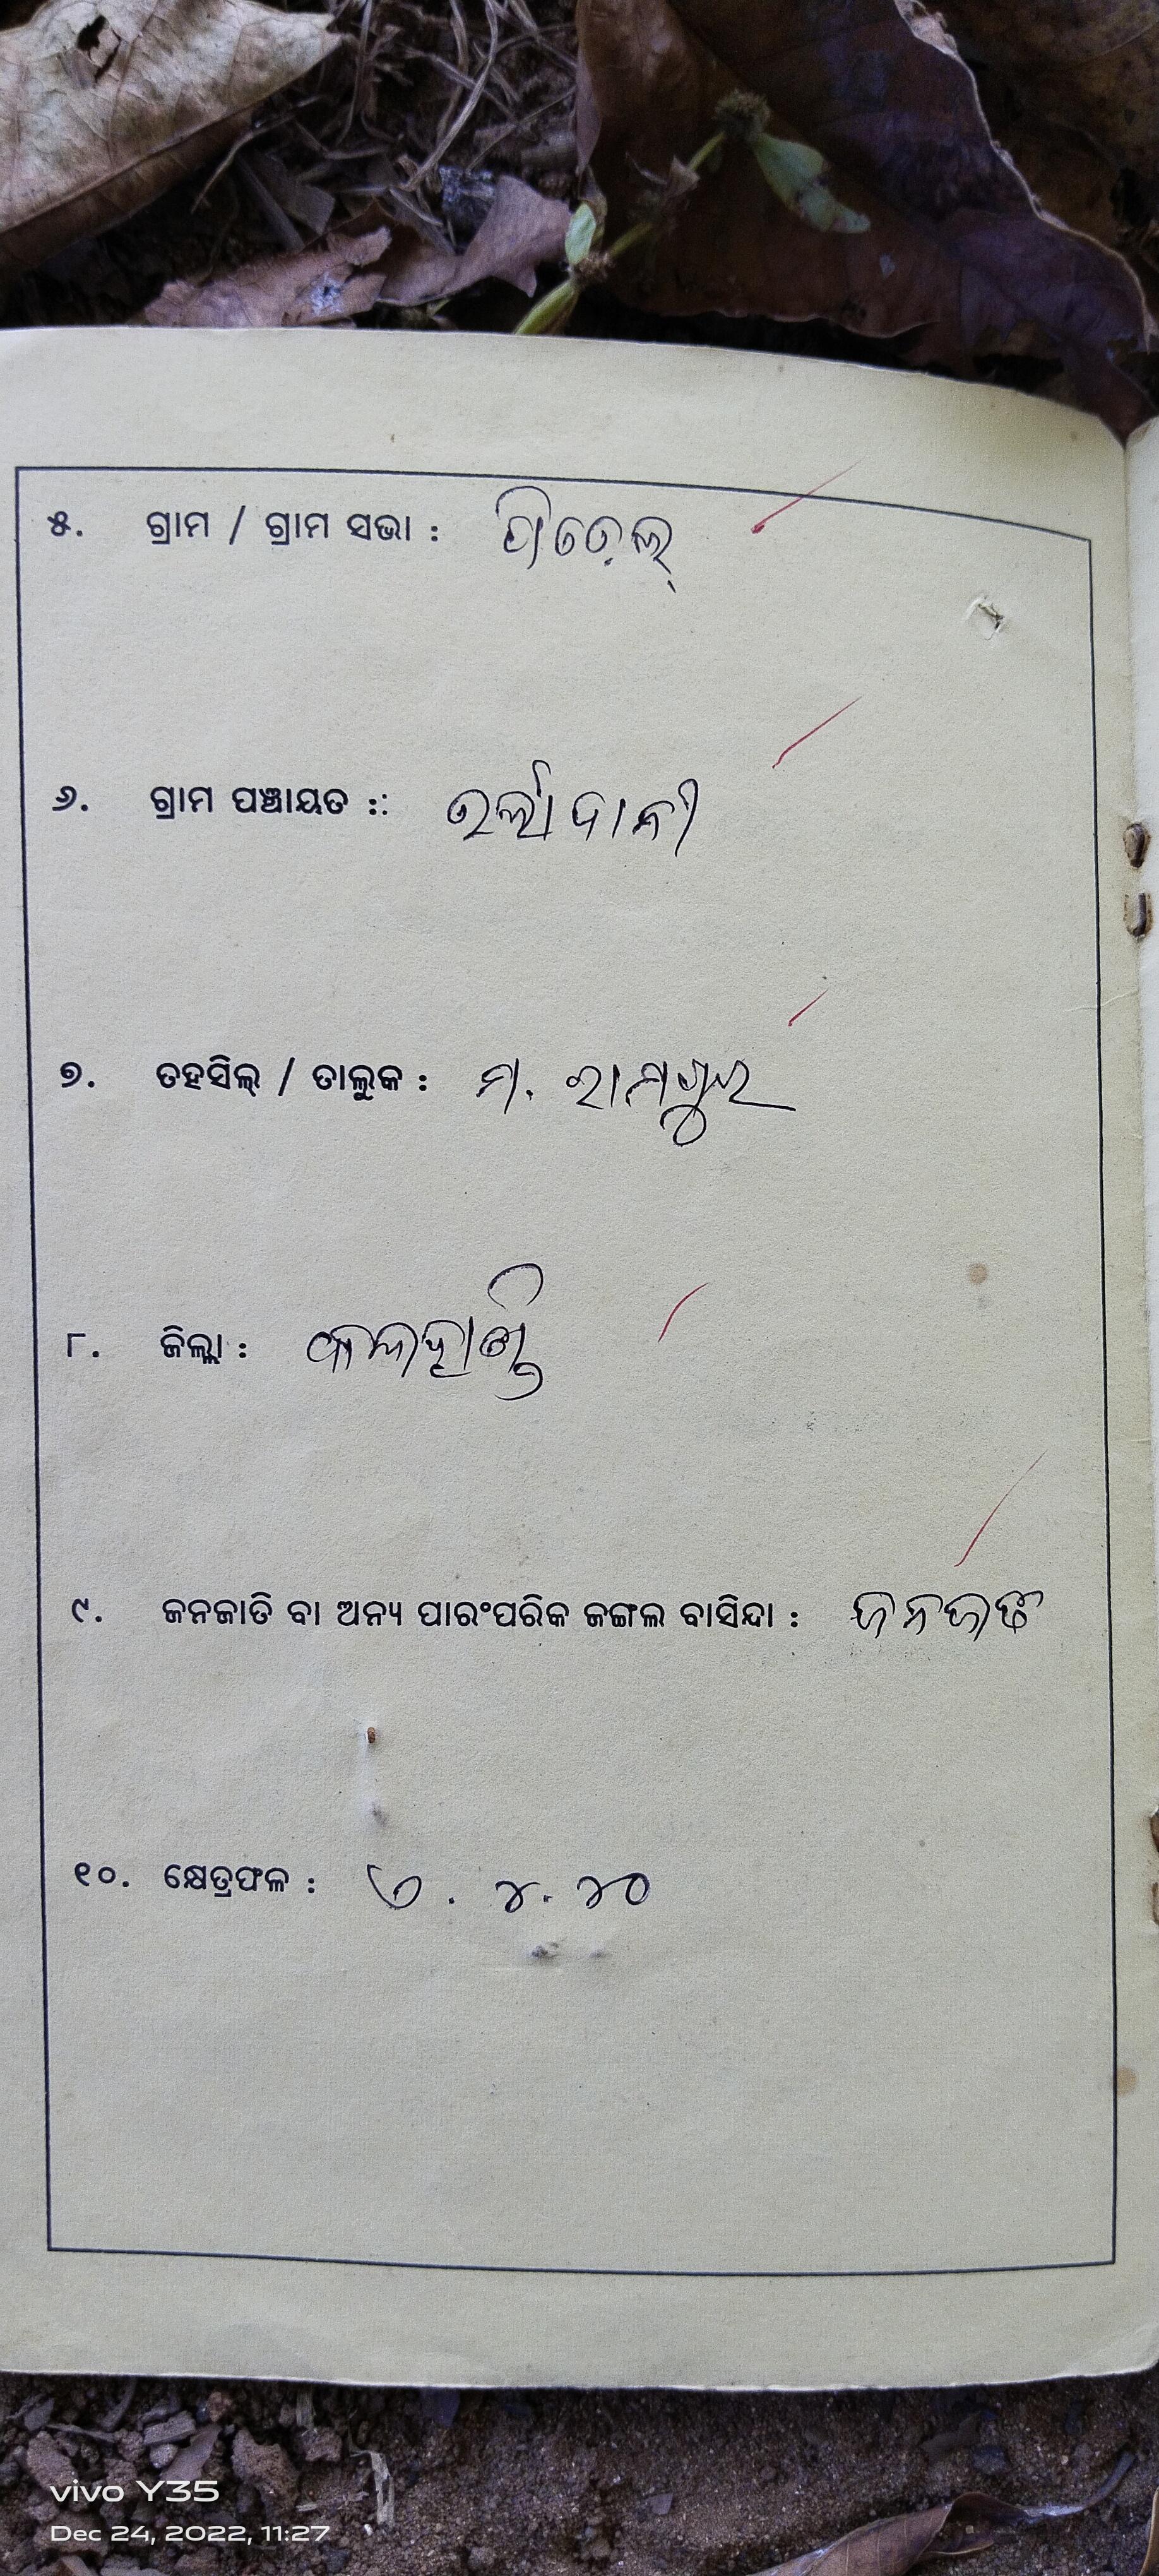 ୫. ଗ୍ରାମ / ଗ୍ରାମ ସଭା :
୬. ଗ୍ରାମ ପଞ୍ଚାୟତ ::
୭. ତହସିଲ୍ / ତାଲୁକ : ମ. ରାମପୁର
୮. ଜିଲ୍ଲା : କଳାହାଣ୍ଡି
୯. ଜନଜାତି ବା ଅନ୍ୟ ପାରଂପରିକ ଜଙ୍ଗଲ ବାସିନ୍ଦା :
୧୦. କ୍ଷେତ୍ରଫଳ :
vivo Y35
Dec 24, 2022, 11:27